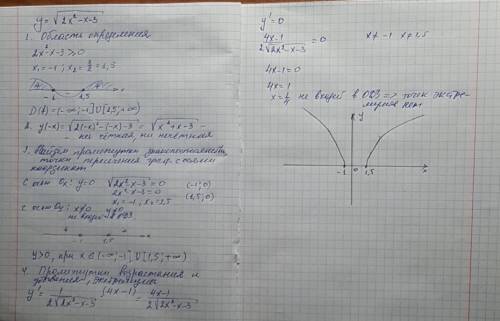 y = √(2x²-x-3)
1. Область определения
2x²-x-3≥0
x₁=-1; x₂=3/2=1,5
-1 1,5 x
D(f)=(-∞;-1]∪[1,5;+∞)
2. y(-x)=√(2(-x)²-(-x)-3) = √(x²+x-3) -
- ни чётная, ни нечетная
3. Найдем промежутки знакопостоянства,
точки пересечения граф. с осями
координат
С осью Ox: y=0 √(2x²-x-3)=0 (-1;0)
2x²-x-3=0 (1,5;0)
x₁=-1, x₂=1,5
с осью Oy: x≠0
не входит в ОДЗ
+ +
-1 1,5
y>0, при x∈(-∞;-1]∪[1,5;+∞)
4. Промежутки возрастания и
убывания, экстремумы
y'=1/(2√(2x²-x-3)) (4x-1) = (4x-1)/(2√(2x²-x-3))
y'=0
(4x-1)/(2√(2x²-x-3)) = 0 x≠-1 x≠1,5
4x-1=0
4x=1
x=1/4 не входит в ОДЗ => точек экстре-
мумов нет
y
-1 0 1,5 x